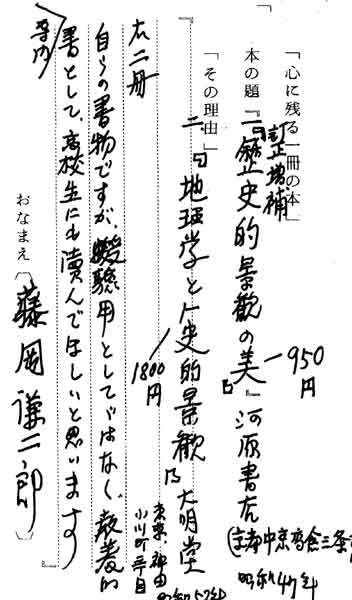 「心に残る一冊の本」
訂正増補
本の題『一、『歴史的景観の美』河原書店
950円
(京都中京高倉三条
昭和47年
「その理由」
二、『地理学と歴史的景観』大明堂
1800円
東京、神田
小川町三丁目
昭和52年
右二冊
自らの書物ですが、受験用としてではなく、教養的
書として、高校生にも読んでほしいと思います
おなまえ〔藤岡謙二郎〕